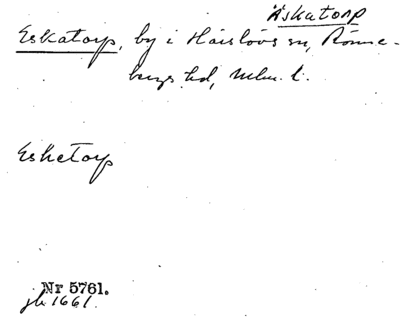 Äskatorp
Eskatorp, by i Häislövs sn, Rönne-
bergs hd, Mlm. l.
Esketorp
Nr 5761.
jb 1661.